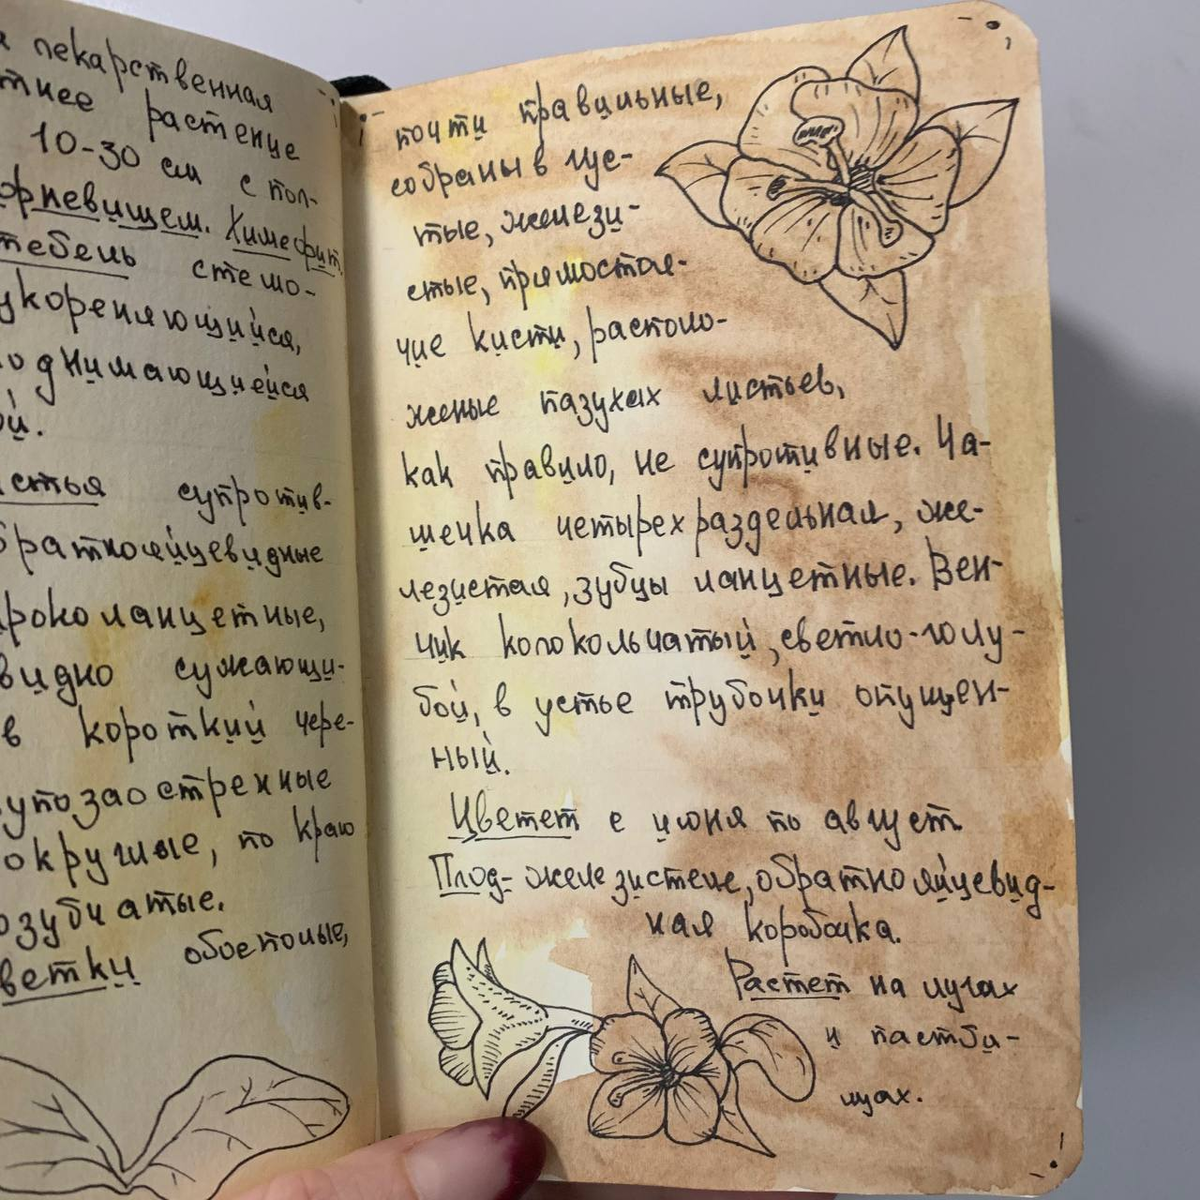 лекарственная
тнее растение
10-30 см с пол-
орневищем. Химеофит.
тебель стело-
укореняющийся,
однимающиейся
ой.
истья супротив-
братнояйцевидные
ироколанцетные,
видно сужающи-
в короткий чере-
упозаостренные
округлые, по краю
озубчатые.
ветки обоеполые,
почти правильные,
собраны в гус-
тые, железы-
стые, прямостоя-
чие кисти, располо-
женые пазухах листьев,
как правило, не супротивные. Ча-
шечка четырехраздельная, же-
лезистая, зубцы ланцетные. Вен-
чик колокольчатый, светло-голу-
бой, в устье трубочки опущен-
ный.
Цветет с июня по август.
Плод- железистене, обратнояйцевид-
ная коробочка.
Растет на лугах
и пастби-
щах.